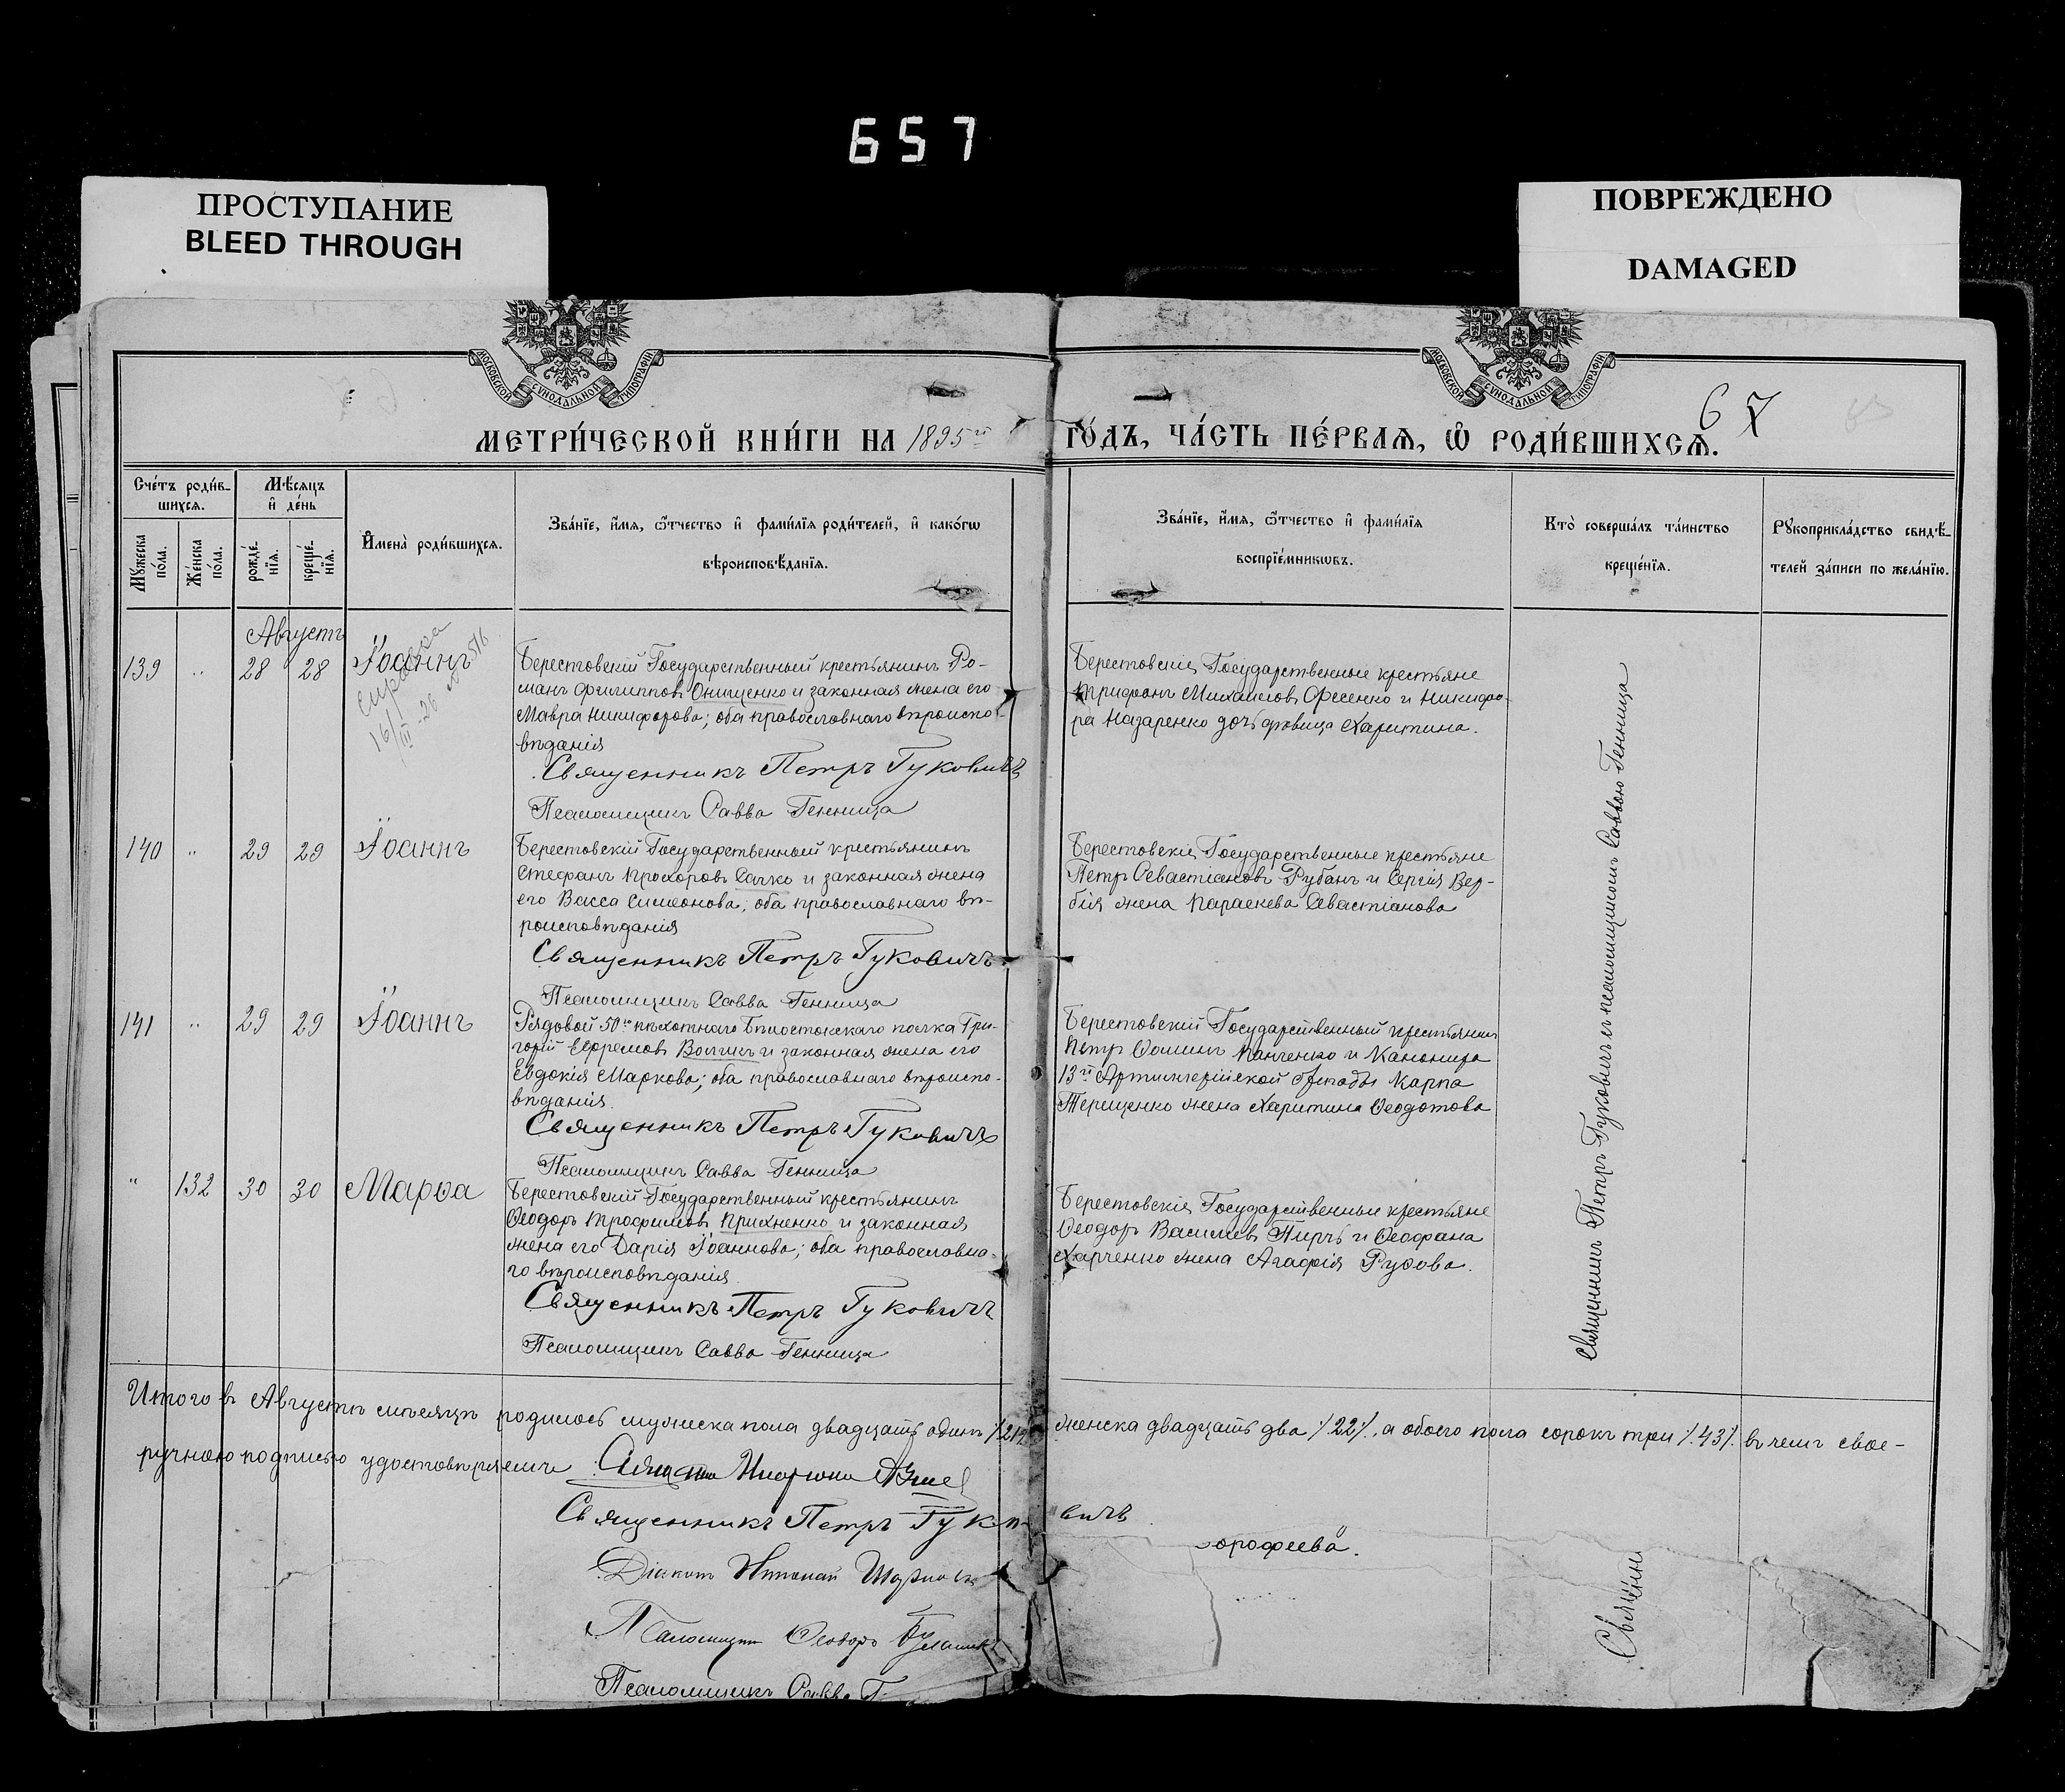 657
ПРОСТУПАНИЕ
BLEED THROUGH
ПОВРЕЖДЕНО
DAMAGED
МОСКОВСКОЙ СѴНОДАЛЬНОЙ ТИПОГРАФІИ
МОСКОВСКОЙ СѴНОДАЛЬНОЙ ТИПОГРАФІИ
67
МЕТРИ́ЧЕСКОЙ КНИ́ГИ НА 1895й ГО́ДЪ, ЧА́СТЬ ПЕ́РВАѦ, Ѿ РОДИ́ВШИХСѦ.
Сче́тъ роди́в-
шихсѧ.
Мꙋжеска по́ла.
Же́нска по́ла.
Мѣ́сяцъ и де́нь
рожде́-
нїѧ.
креще́-
нїѧ.
И҆мена̀ роди́вшихсѧ.
Зва́нїе, и҆́мѧ, ѻ҆́тчество и҆ фами́лїѧ роди́телей, и҆ како́гѡ
вѣроисповѣ́данїѧ.
Зва́нїе, и҆́мѧ, ѻ҆́тчество и҆ фами́лїѧ
воспрїе́мникѡвъ.
Кто̀ соверша́лъ та́инство
креще́нїѧ.
Рꙋкоприкла́дство свидѣ́-
телей за́писи по жела́нїю.
Августъ
139 " 28 28 Іоаннъ
справка
16/III-26
Берестовскій Государственный крестьянинъ Ро-
манъ Филипповъ Онищенко и законная жена его
Мавра Никифорова; оба православнаго вѣроиспо-
вѣданія
Священникъ Петръ Гуковичъ
Псаломщикъ Савва Генница
Берестовскіе Государственные крестьяне
Трифонъ Михаиловъ Фесенко и Никифо-
ра Назаренко дочь девица Харитина.
140 " 29 29 Іоаннъ
Берестовскій Государственный крестьянинъ
Стефанъ Прохоровъ Сачко и законная жена
его Васса Симеонова; оба православнаго вѣ-
роисповѣданія
Священникъ Петръ Гуковичъ
Псаломщикъ Савва Генница
Берестовскіе Государственные крестьяне
Петръ Севастіановъ Рубанъ и Сергія Вер-
бія жена Параскева Севастіанова
141 " 29 29 Іоаннъ
Рядовой 50го пѣхотнаго Бѣлостокскаго полка Гри-
горій Ефремовъ Воликъ и законная жена его
Евдокія Маркова; оба православнаго вѣроиспо-
вѣданія.
Священникъ Петръ Гуковичъ
Псаломщикъ Савва Генница
Берестовскій Государственный крестьянинъ
Петръ Ѳоминъ Панченко и Канонира
13й Артиллерійской бригады Карпа
Терещенко жена Харитина Ѳеодотова
" 132 30 30 Марѳа
Берестовскій Государственный крестьянинъ
Ѳеодоръ Трофимовъ Прихненко и законная
жена его Дарія Іоаннова; оба православна-
го вѣроисповѣданія.
Священникъ Петръ Гуковичъ
Псаломщикъ Савва Генница
Берестовскіе Государственные крестьяне
Ѳеодоръ Василіевъ Пирчъ и Ѳеофана
Харченко жена Агафія Рудова.
Священникъ Петръ Гуковичъ съ псаломщикомъ Саввою Генница
Итого въ Августѣ мѣсяцѣ родилось мужеска пола двадцать одинъ /.21/. женска двадцать два /.22/., а обоего пола сорокъ три /.43/. въ чемъ свое-
ручною подписью удостовѣряемъ
Священникъ Петръ Гуковичъ
Діаконъ
Псаломщикъ Ѳеодоръ
Псаломщикъ Савва Г
орофеева.
Священни